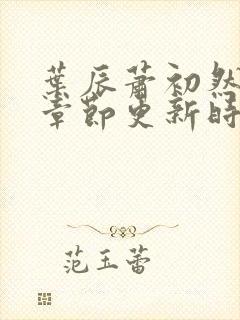 葉辰蕭初然
章節更新時
范玉蕾